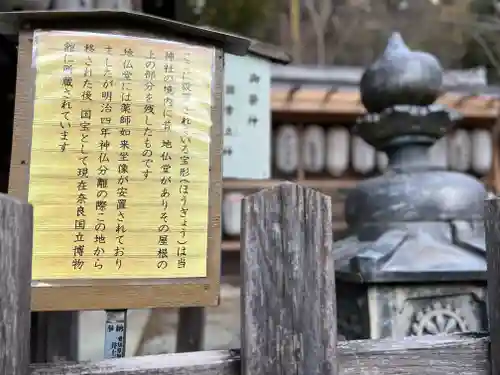 ここに設置されている宝形(ほうぎょう)は当
神社の境内に昔 地仏堂がありその屋根の
上の部分を残したものです
地仏堂には薬師如来坐像が安置されており
ましたが明治四年神仏分離の際この地から
移された後、国宝として現在奈良国立博物
館に所蔵されています
御祭神
国常立神